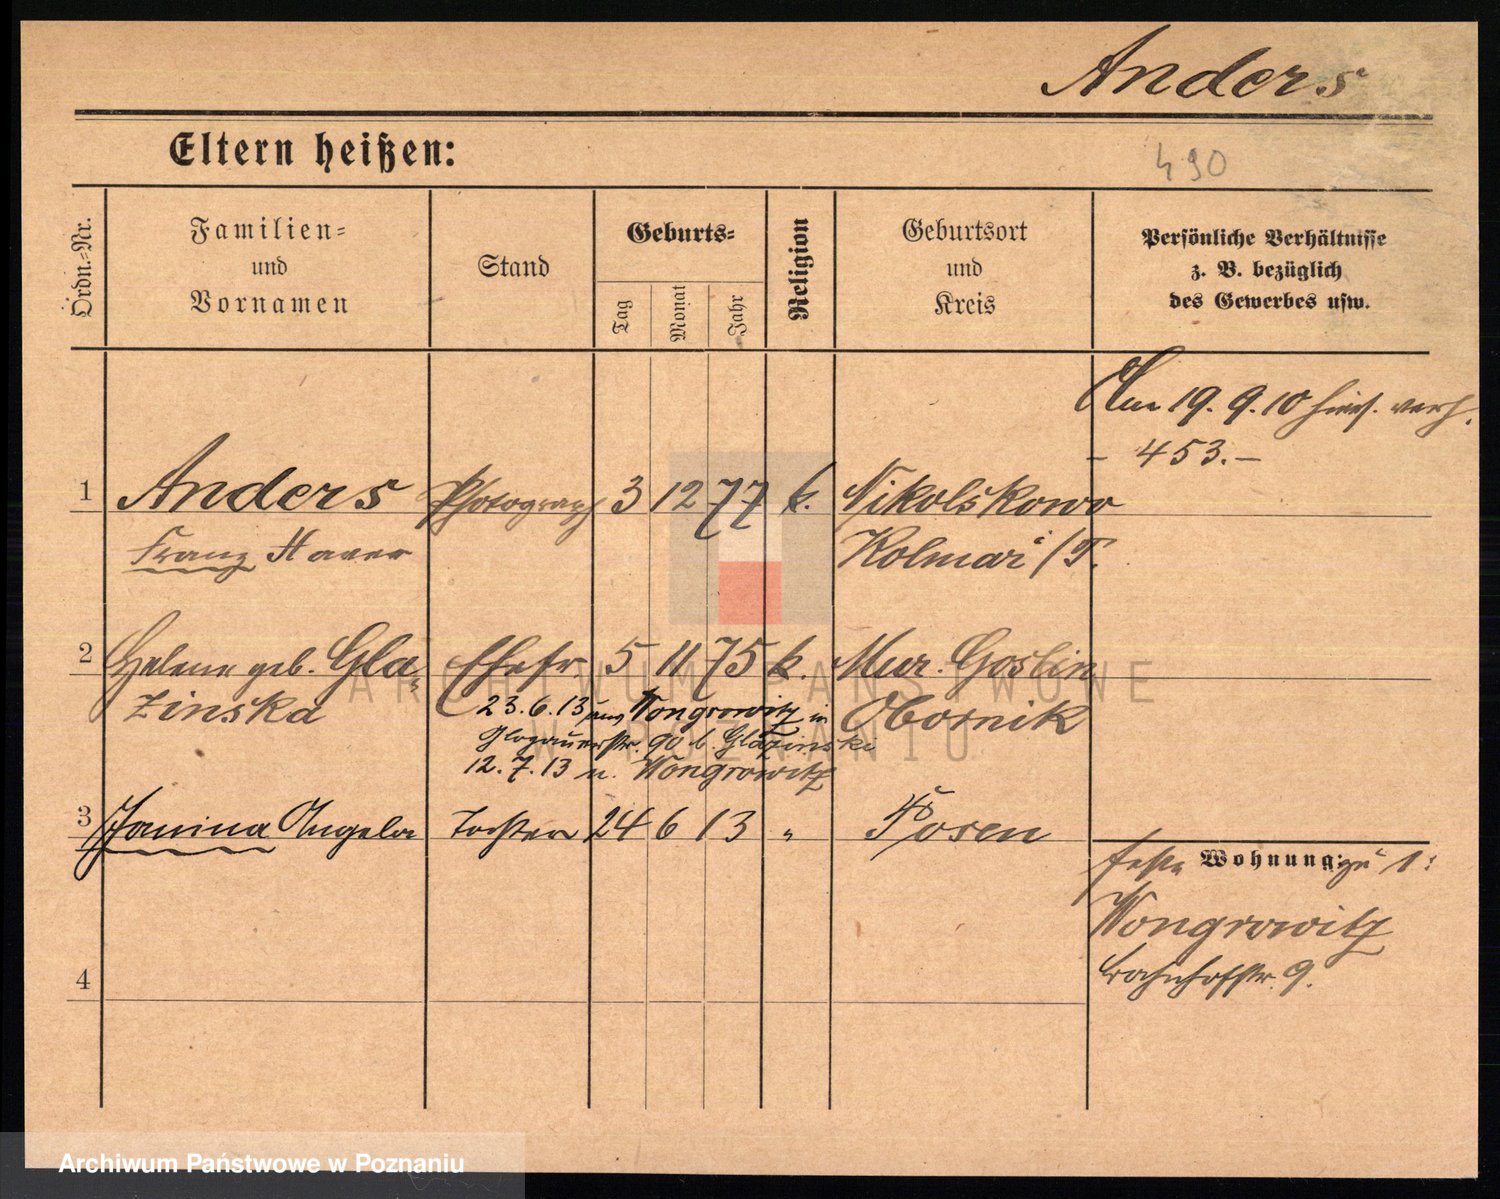 Anders
Eltern heißen:
490
Ordn.-Nr.
Familien-
und
Vornamen
Stand
Geburts-
Tag
Monat
Jahr
Religion
Geburtsort
und
Kreis
Persönliche Verhältnisse
z. B. bezüglich
des Gewerbes usw.
Am 19. 9. 10 hies. verh.
- 453.-
1 Anders Photograph 3 12 77 k. Nikolskowo
Franz Kolmar i/P.
2 Helene geb. Gla- Ehefr. 5 11 75 k. Mur. Goslin
zinska Obornik
23.6.13 aus Wongrowitz in
Glogauerstr. 90 b. Glazinski
12.7.13 n. Wongrowitz
3 Janina Angela Tochter 24 6 13 " Posen
feste Wohnung zu 1:
Wongrowitz
Bahnhofstr. 9.
4
ARCHIWUM PAŃSTWOWE
W POZNANIU
Archiwum Państwowe w Poznaniu